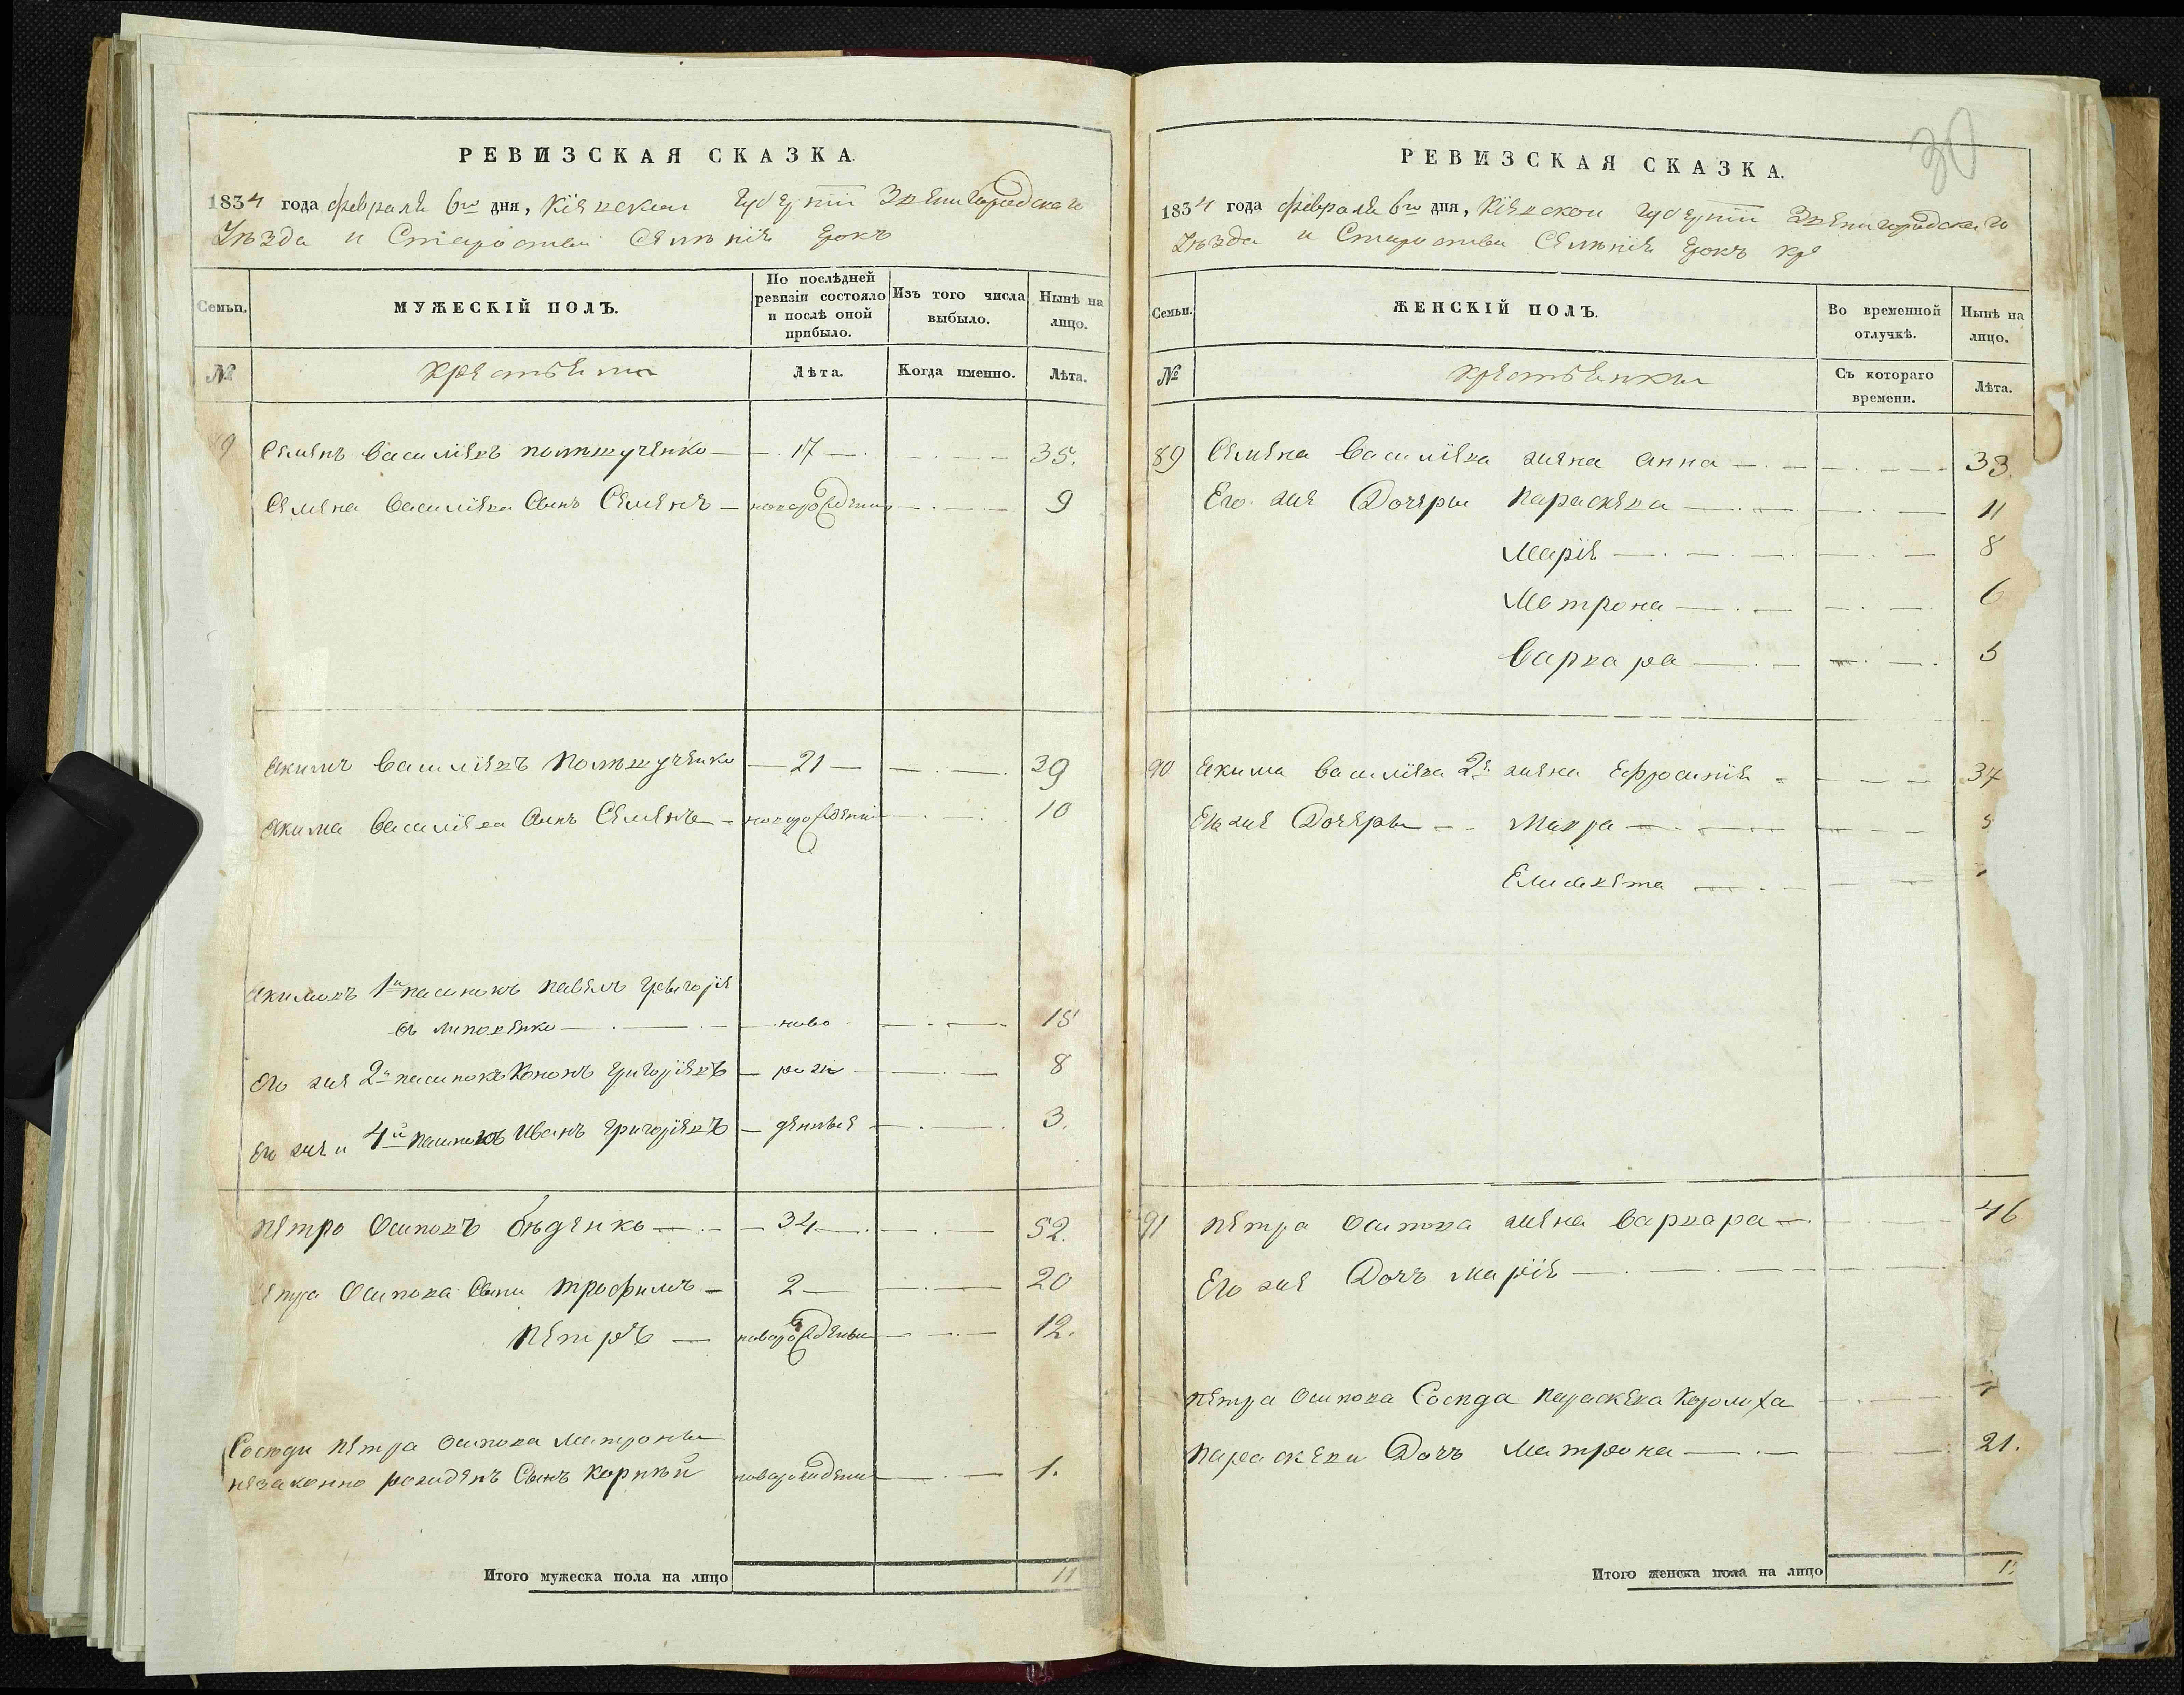 30
РЕВИЗСКАЯ СКАЗКА.
1834 года февраля 6го дня, Кіевской Губерніи Звенигородскаго
Уѣзда и Староства Селенія Ерокъ
Семьи.
МУЖЕСКІЙ ПОЛЪ.
По послѣдней ревизіи состояло и послѣ оной прибыло.
Изъ того числа выбыло.
Нынѣ на лицо.
№
Крестьяни
Лѣта.
Когда именно.
Лѣта.
89 Семенъ Василіевъ — 17 — 35.
Семена Василіева Сынъ Семенъ — новорожденни — 9
Якимъ Василіевъ — 21 — 39
Якима Василіева Сынъ Семенъ — новорожденни — 10
Якимовъ 1й пасинокъ Павелъ Григоріе
въ Липовенко — ново — 15
Его же 2й пасинокъ Кононъ Григоріевъ — рож — 8
Его же и 4й пасинокъ Иванъ Григоріевъ — денные — 3.
Петро Осиповъ Бѣденко — 34 — 52.
Петра Осипова Сыни Трофимъ — 2 — 20
Петръ — новорожденны — 12.
Сосѣди Петра Осипова Матроны
незаконно рожденъ Сынъ Корнѣй новорожденни — 1.
Итого мужеска пола на лицо 11
РЕВИЗСКАЯ СКАЗКА.
1834 года февраля 6го дня, Кіевской Губерніи Звенигородскаго
Уѣзда и Староства Селенія Ерокъ
Семьи.
ЖЕНСКІЙ ПОЛЪ.
Во временной отлучкѣ.
Нынѣ на лицо.
№
Крестьянки
Съ котораго времени.
Лѣта.
89 Семена Василіева жена Анна — 33.
Его же Дочеры Параскева — 11
Марія — 8
Матрона — 6
Варвара — 5
90 Якима Василіева 2я жена Ефросинія — 37
Его же Дочеры — Мавра — 5
Елисавета —
91 Петра Осипова жена Варвара — 46
Его же Дочъ Марія —
Петра Осипова Сосѣда Параскева Королиха
Параскеви Дочъ Матрона — 21.
Итого женска пола на лицо